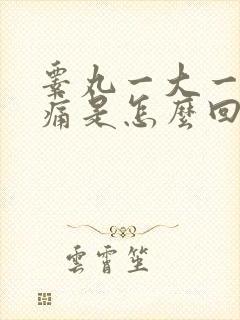 睾丸一大一
痛是怎麼回
雲霄笙